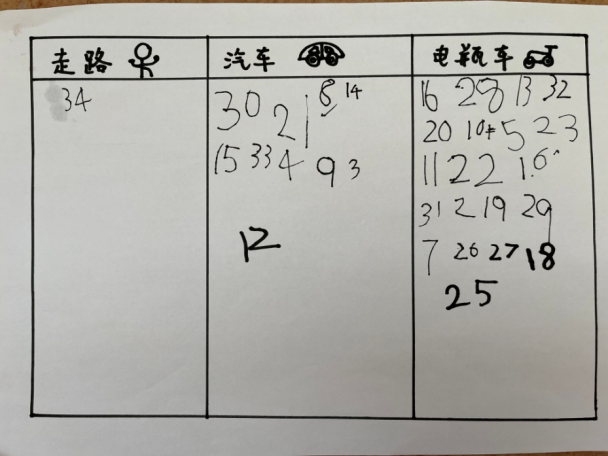 走路 汽车 电瓶车
34
30 21 8 14
15 33 4 9 3
12
16 28 13 32
20 10 5 23
11 22 1 6
31 2 19 29
7 26 27 18
25